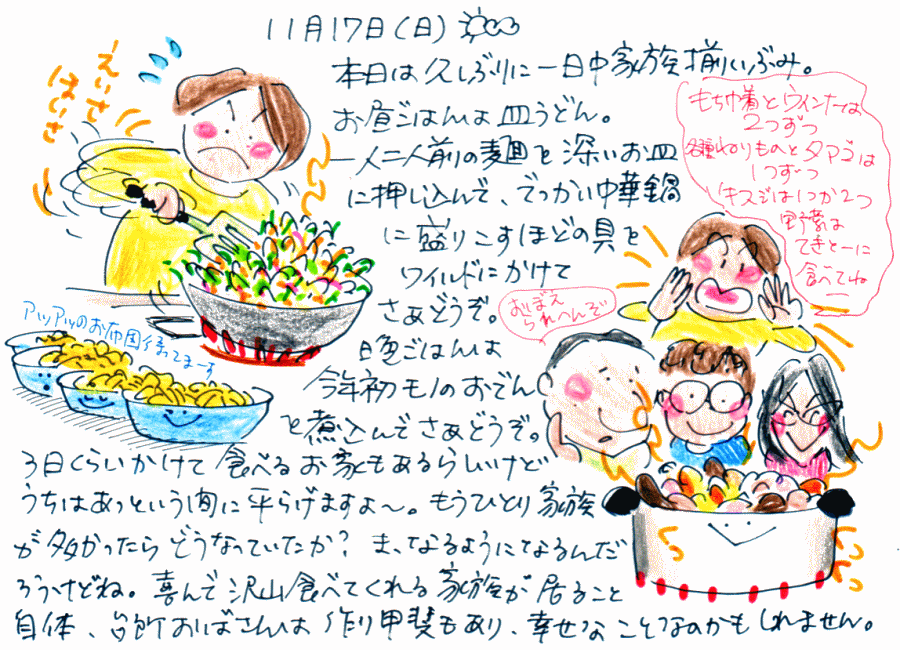 11月17日(日)
本日は久しぶりに一日中家族揃いぶみ。
お昼ごはんは皿うどん。
一人二人前の麺を深いお皿
に押し込んで、でっかい中華鍋
に盛りこすほどの具を
ワイルドにかけて
さぁどうぞ。
晩ごはんは
今年初モノのおでん
を煮込んでさぁどうぞ。
3日くらいかけて食べるお家もあるらしいけど
うちはあっという間に平らげますよ〜。もうひとり家族
が多かったらどうなっていたか?まっなるようになるんだ
ろうけどね。喜んで沢山食べてくれる家族が居ること
自体、台所おばさんは作り甲斐もあり、幸せなことなのかもしれません。
えいさ
ほいさ
アツアツのお布団待ってまーす
もち巾着とウィンナーは
2つずつ
各種ねりものとタマゴは
1つずつ
牛スジは1つか2つ
野菜は
てきとーに
食べてね
おぼえ
られへんぞ